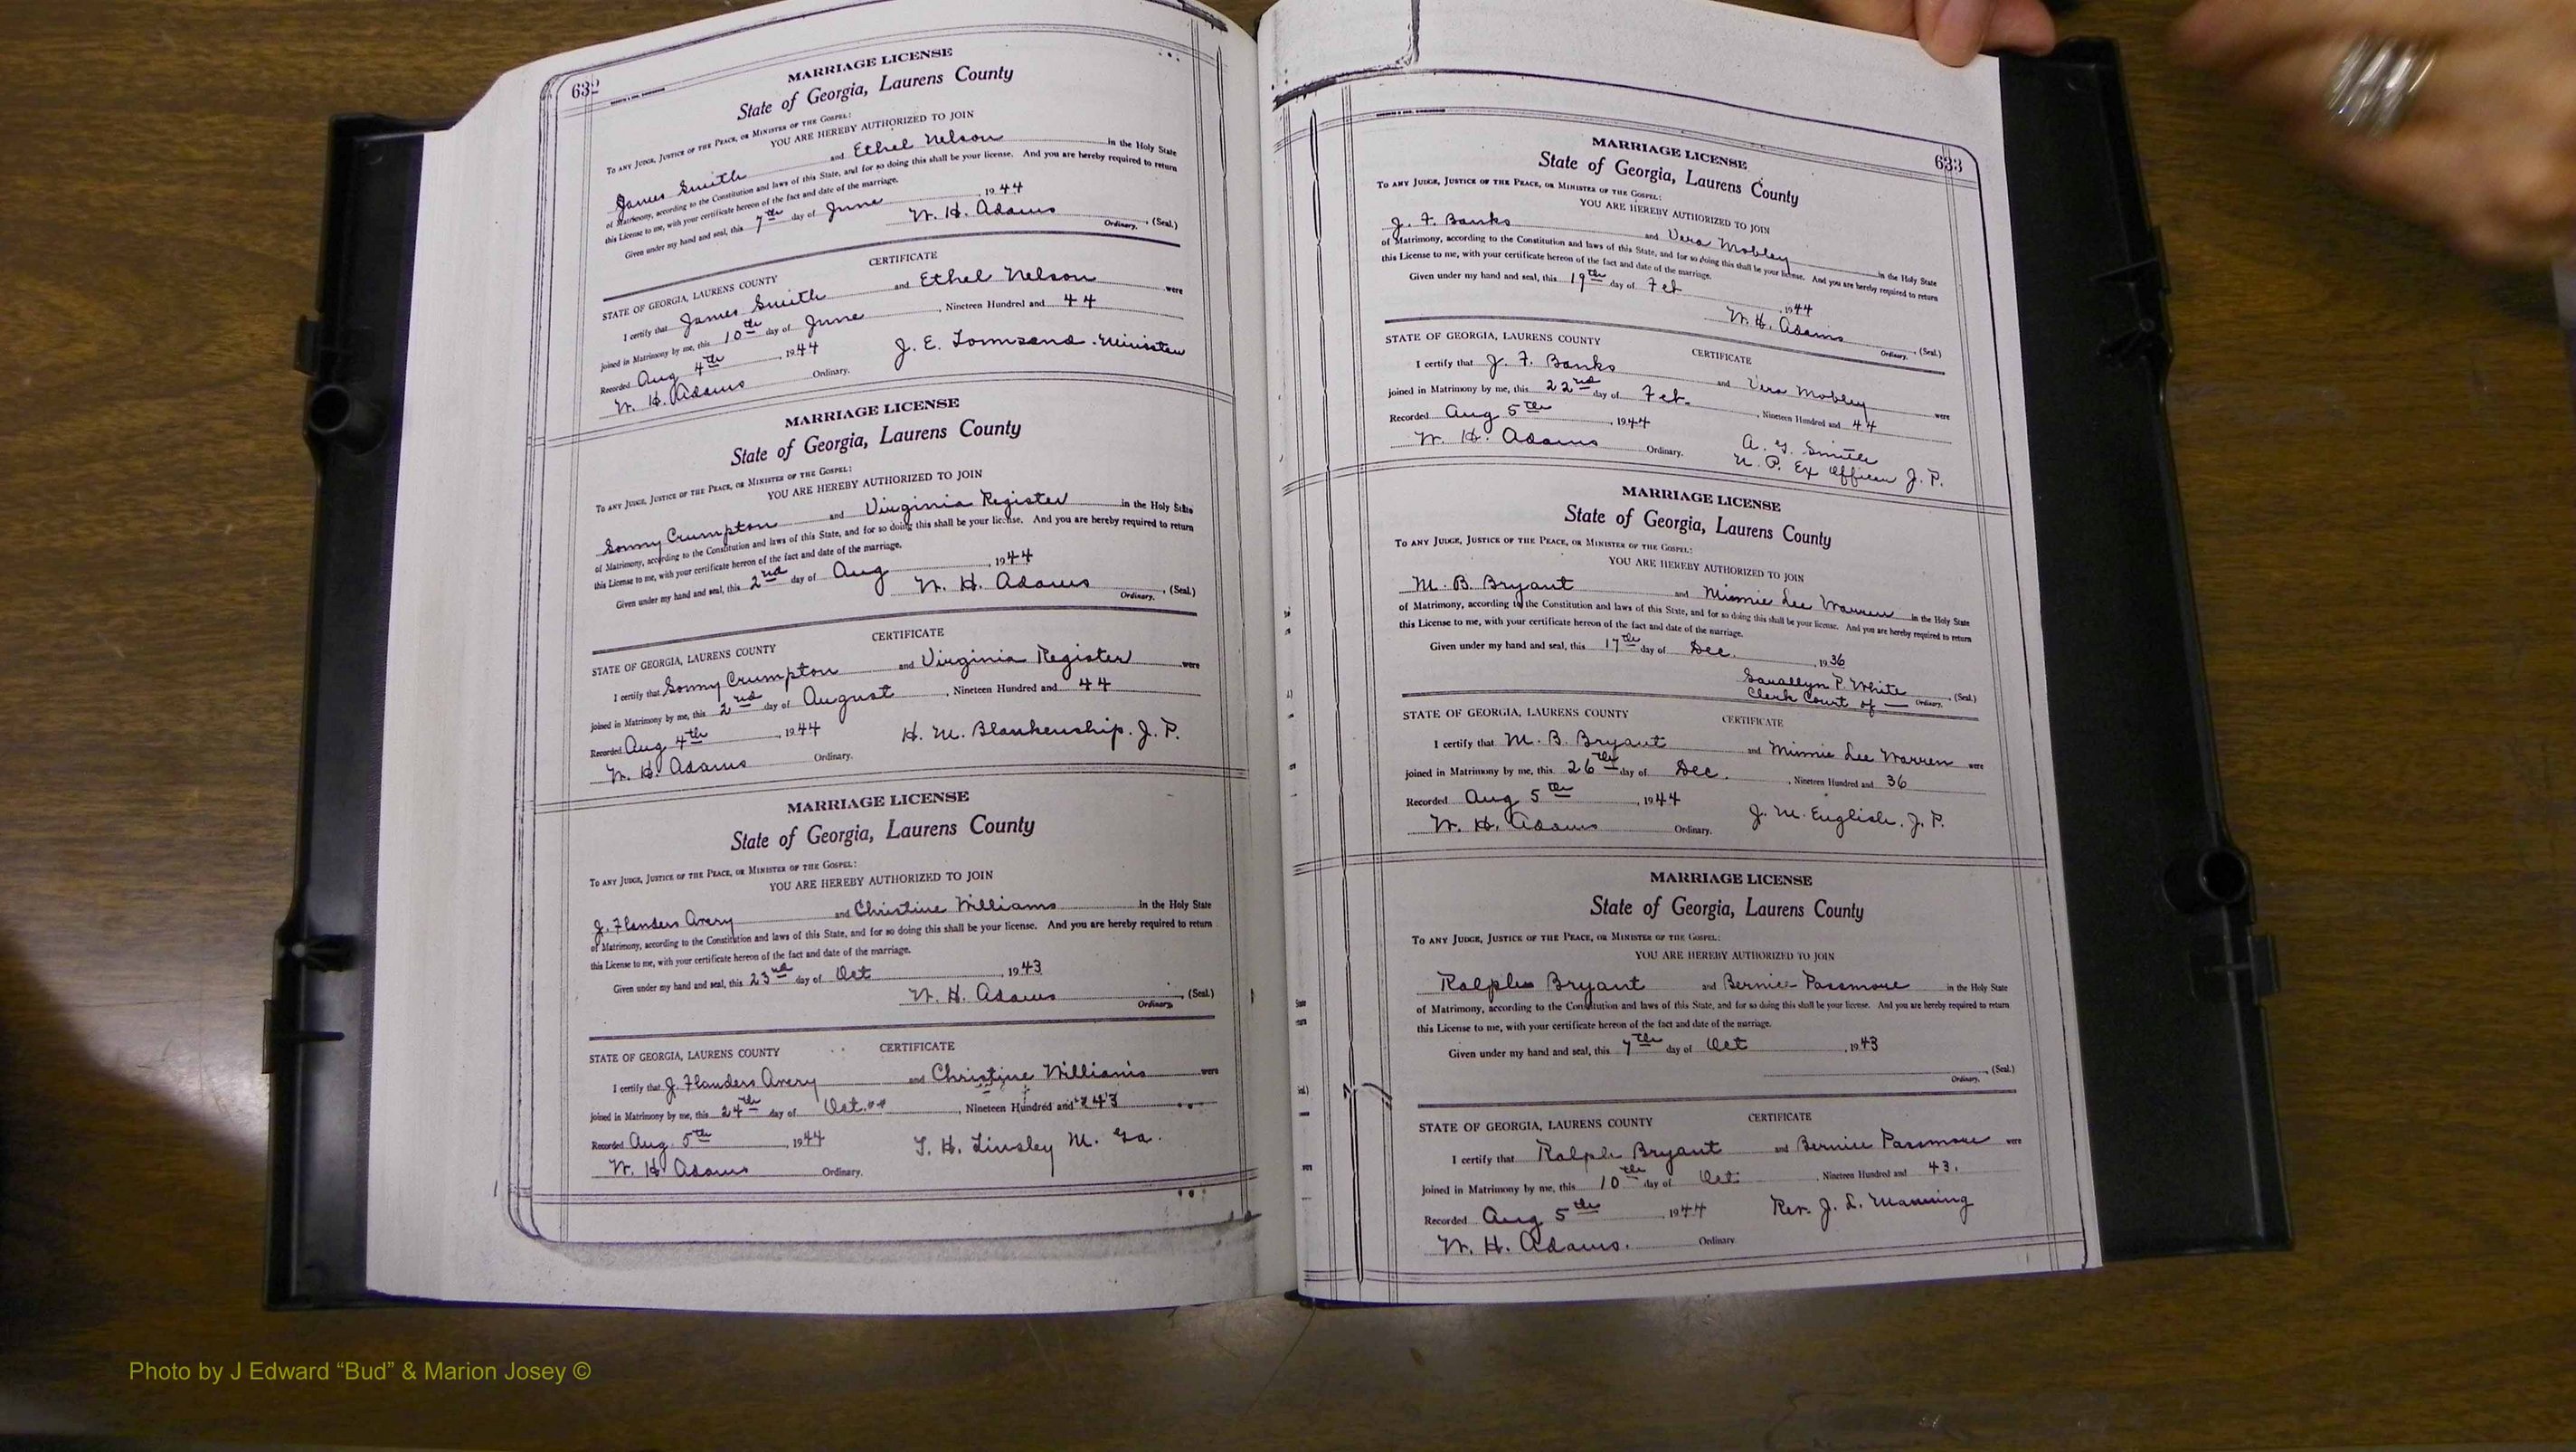 632
MARRIAGE LICENSE
State of Georgia, Laurens County
To any Judge, Justice of the Peace, or Minister of the Gospel:
YOU ARE HEREBY AUTHORIZED TO JOIN
James Smith and Ethel Nelson in the Holy State
of Matrimony, according to the Constitution and laws of this State, and for so doing this shall be your license. And you are hereby required to return
this License to me, with your certificate hereon of the fact and date of the marriage.
Given under my hand and seal, this 7th day of June, 1944
W. H. Adams, (Seal.)
Ordinary.
CERTIFICATE
STATE OF GEORGIA, LAURENS COUNTY
I certify that James Smith and Ethel Nelson were
joined in Matrimony by me, this 10th day of June, Nineteen Hundred and 44
Recorded Aug 4th, 1944 J. E. Townsend. Minister
W. H. Adams Ordinary.
MARRIAGE LICENSE
State of Georgia, Laurens County
To any Judge, Justice of the Peace, or Minister of the Gospel:
YOU ARE HEREBY AUTHORIZED TO JOIN
Sonny Crumpton and Virginia Register in the Holy State
of Matrimony, according to the Constitution and laws of this State, and for so doing this shall be your license. And you are hereby required to return
this License to me, with your certificate hereon of the fact and date of the marriage.
Given under my hand and seal, this 2nd day of Aug, 1944
W. H. Adams, (Seal.)
Ordinary.
CERTIFICATE
STATE OF GEORGIA, LAURENS COUNTY
I certify that Sonny Crumpton and Virginia Register were
joined in Matrimony by me, this 2nd day of August, Nineteen Hundred and 44
Recorded Aug 4th, 1944 H. M. Blankenship. J. P.
W. H. Adams Ordinary.
MARRIAGE LICENSE
State of Georgia, Laurens County
To any Judge, Justice of the Peace, or Minister of the Gospel:
YOU ARE HEREBY AUTHORIZED TO JOIN
J. Flanders Avery and Christine Williams in the Holy State
of Matrimony, according to the Constitution and laws of this State, and for so doing this shall be your license. And you are hereby required to return
this License to me, with your certificate hereon of the fact and date of the marriage.
Given under my hand and seal, this 23rd day of Oct, 1943
W. H. Adams, (Seal.)
Ordinary.
CERTIFICATE
STATE OF GEORGIA, LAURENS COUNTY
I certify that J. Flanders Avery and Christine Williams were
joined in Matrimony by me, this 24th day of Oct., Nineteen Hundred and 43
Recorded Aug. 5th, 1944 T. H. Tinsley M. Ga.
W. H. Adams Ordinary.
633
MARRIAGE LICENSE
State of Georgia, Laurens County
To any Judge, Justice of the Peace, or Minister of the Gospel:
YOU ARE HEREBY AUTHORIZED TO JOIN
J. F. Banks and Vera Mobley in the Holy State
of Matrimony, according to the Constitution and laws of this State, and for so doing this shall be your license. And you are hereby required to return
this License to me, with your certificate hereon of the fact and date of the marriage.
Given under my hand and seal, this 19th day of Feb, 1944
W. H. Adams, (Seal.)
Ordinary.
CERTIFICATE
STATE OF GEORGIA, LAURENS COUNTY
I certify that J. F. Banks and Vera Mobley were
joined in Matrimony by me, this 22nd day of Feb., Nineteen Hundred and 44
Recorded Aug 5th, 1944 A. G. Smith
W. H. Adams Ordinary. N. P. Ex Officer J. P.
MARRIAGE LICENSE
State of Georgia, Laurens County
To any Judge, Justice of the Peace, or Minister of the Gospel:
YOU ARE HEREBY AUTHORIZED TO JOIN
M. B. Bryant and Minnie Lee Warren in the Holy State
of Matrimony, according to the Constitution and laws of this State, and for so doing this shall be your license. And you are hereby required to return
this License to me, with your certificate hereon of the fact and date of the marriage.
Given under my hand and seal, this 17th day of Dec., 1936
P. White, (Seal.)
Clerk Court of — Ordinary.
CERTIFICATE
STATE OF GEORGIA, LAURENS COUNTY
I certify that M. B. Bryant and Minnie Lee Warren were
joined in Matrimony by me, this 26th day of Dec., Nineteen Hundred and 36
Recorded Aug 5th, 1944 J. M. English, J. P.
W. H. Adams Ordinary.
MARRIAGE LICENSE
State of Georgia, Laurens County
To any Judge, Justice of the Peace, or Minister of the Gospel:
YOU ARE HEREBY AUTHORIZED TO JOIN
Ralph Bryant and Bernice Passmore in the Holy State
of Matrimony, according to the Constitution and laws of this State, and for so doing this shall be your license. And you are hereby required to return
this License to me, with your certificate hereon of the fact and date of the marriage.
Given under my hand and seal, this 7th day of Oct, 1943
(Seal.)
Ordinary.
CERTIFICATE
STATE OF GEORGIA, LAURENS COUNTY
I certify that Ralph Bryant and Bernice Passmore were
joined in Matrimony by me, this 10th day of Oct, Nineteen Hundred and 43.
Recorded Aug 5th, 1944 Rev. J. L. Manning
W. H. Adams. Ordinary
Photo by J Edward “Bud” & Marion Josey ©